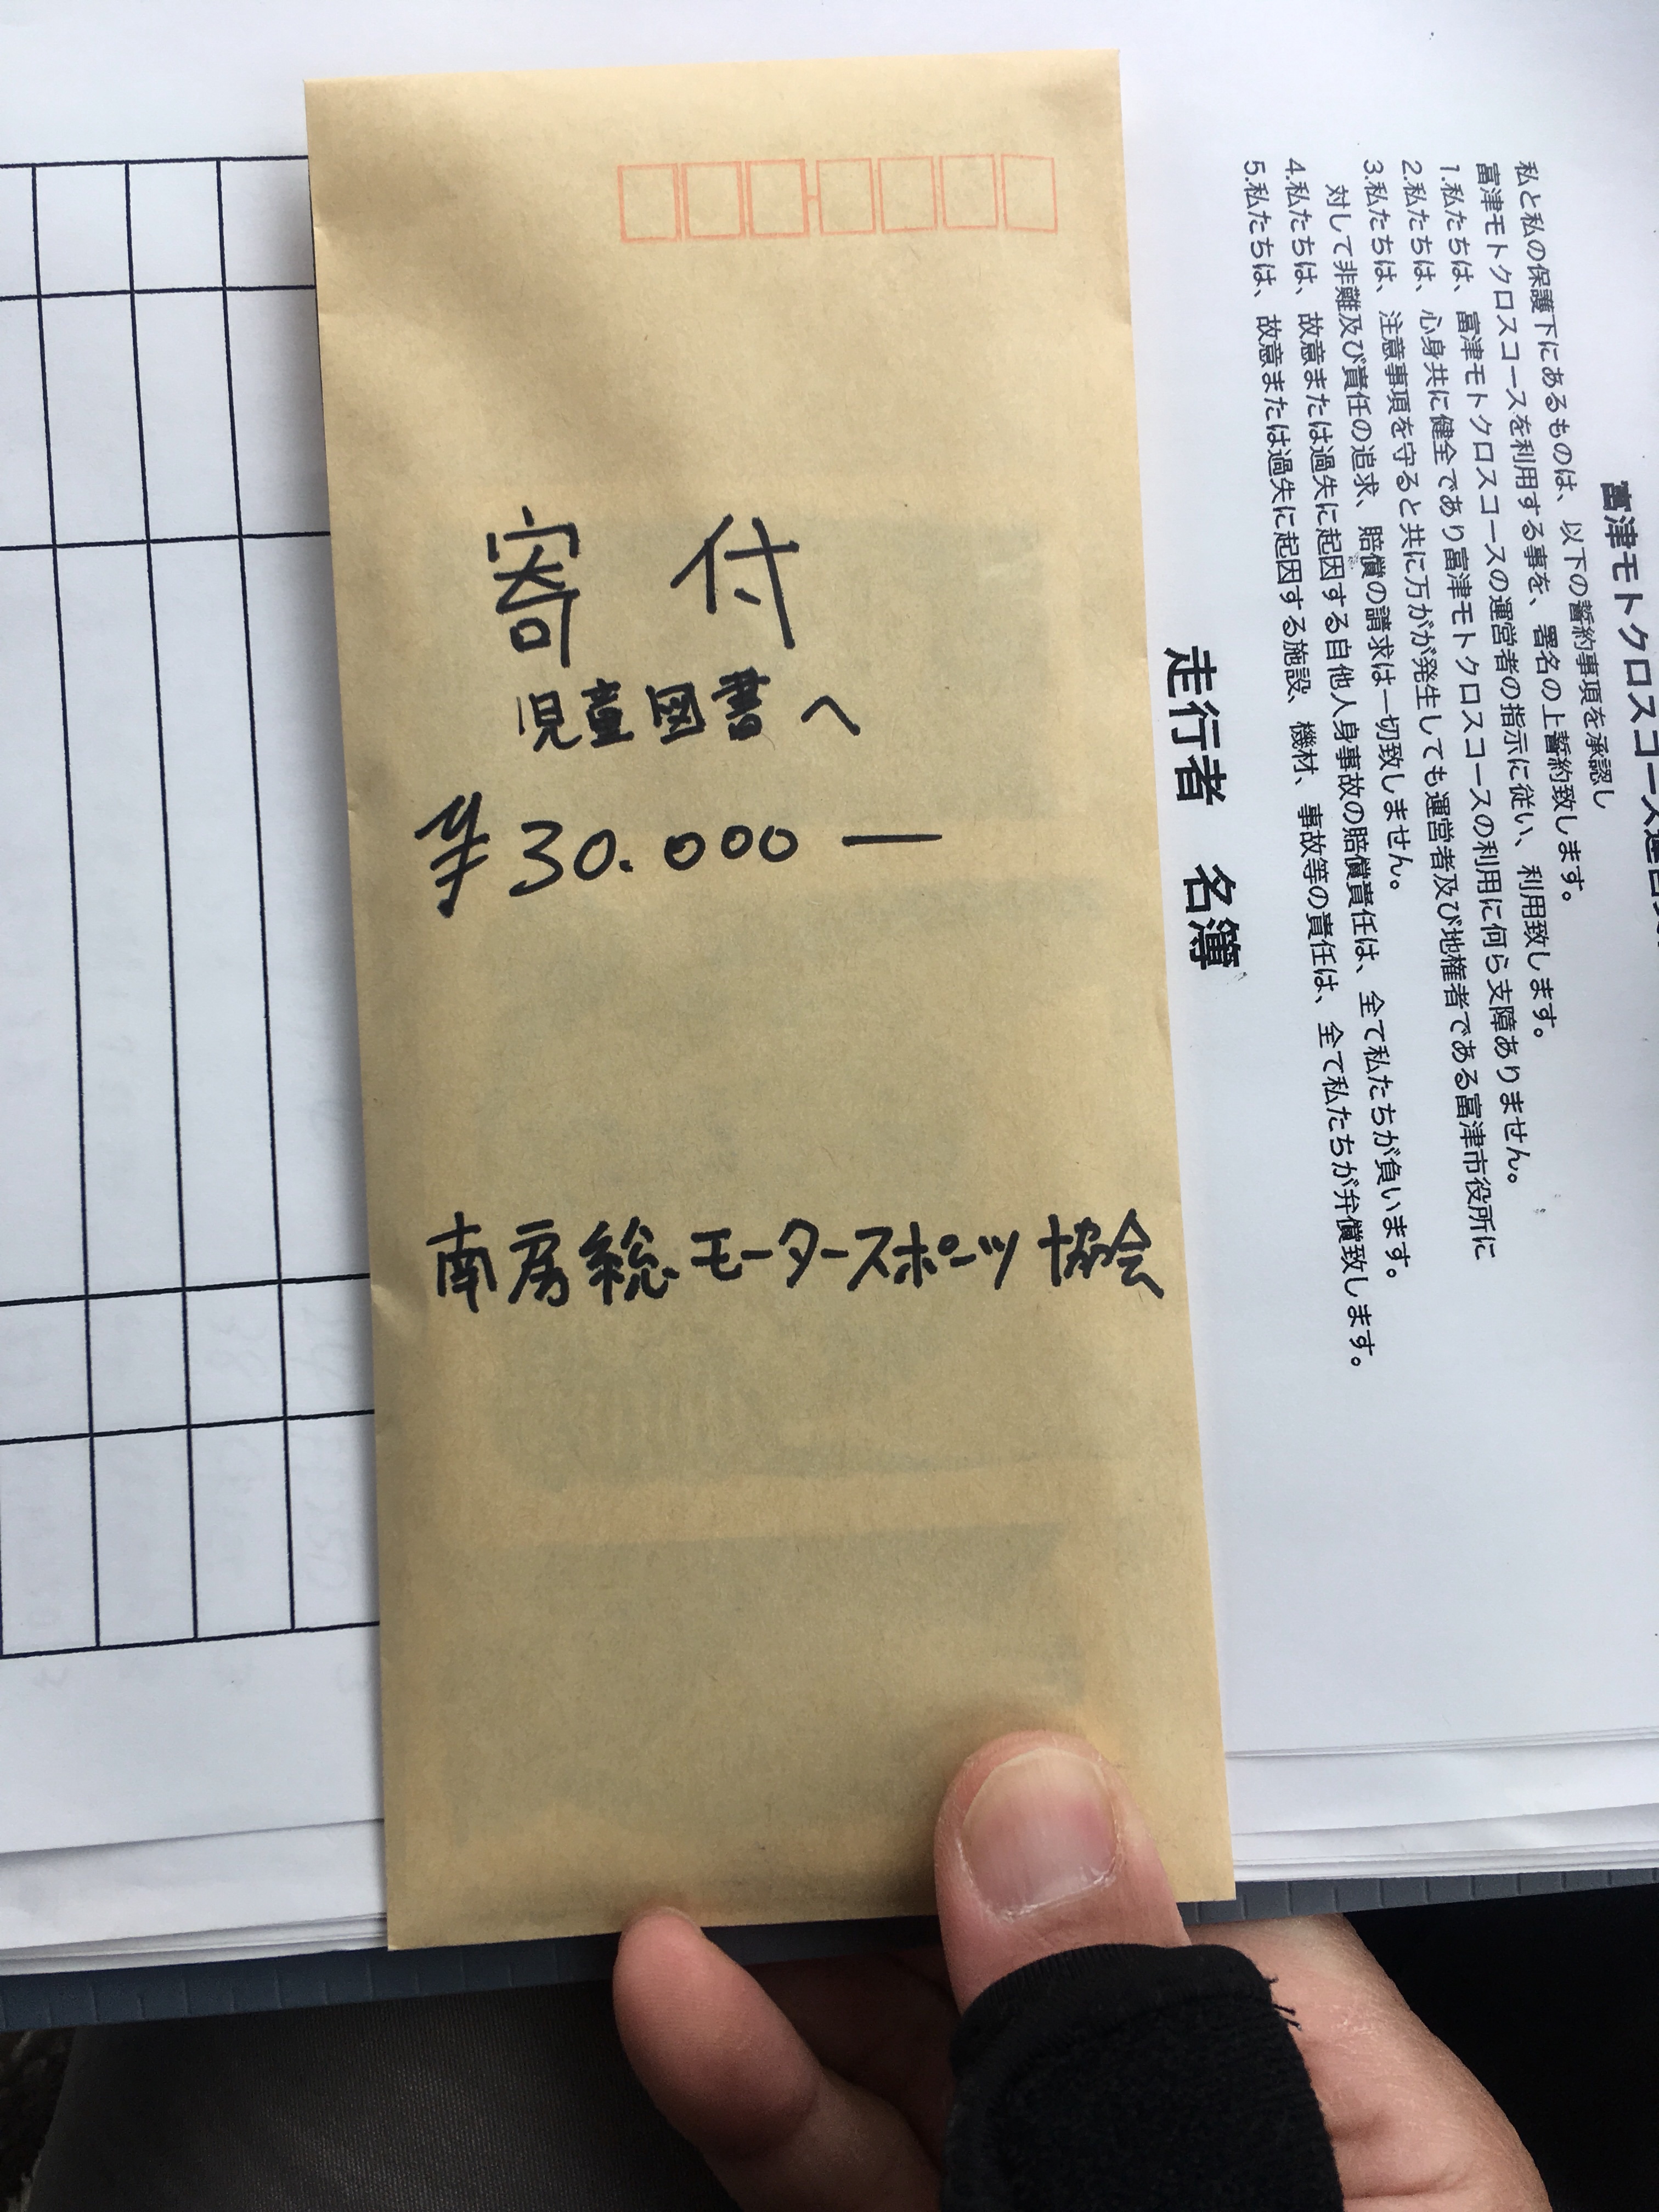 寄付
児童図書へ
¥30.000ー
南房総モータースポーツ協会
富津モトクロスコース運営
私と私の保護下にあるものは、以下の誓約事項を承認し
富津モトクロスコースを利用する事を、署名の上誓約致します。
1.私たちは、富津モトクロスコースの運営者の指示に従い、利用致します。
2.私たちは、心身共に健全であり富津モトクロスコースの利用に何ら支障ありません。
3.私たちは、注意事項を守ると共に万がが発生しても運営者及び地権者である富津市役所に
対して非難及び責任の追求、賠償の請求は一切致しません。
4.私たちは、故意または過失に起因する自他人身事故の賠償責任は、全て私たちが負います。
5.私たちは、故意または過失に起因する施設、機材、事故等の責任は、全て私たちが弁償致します。
走行者 名簿